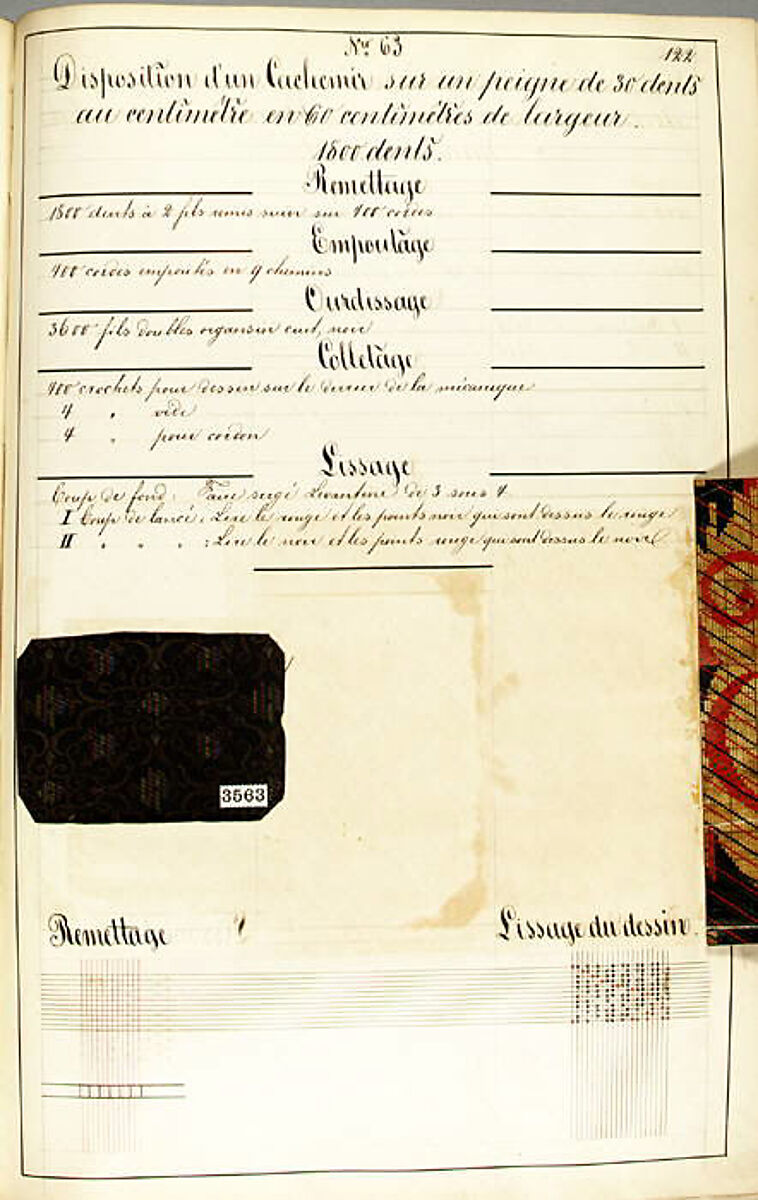 Nº 63
122
Disposition d'un Cachemir sur un peigne de 30 dents
au centimètre en 60 centimètres de largeur.
1800 dents.
Remettage
1800 dents à 2 fils remis suivi sur 400 cordes
Empoutage
400 cordes empoutés en 9 chemins
Ourdissage
3600 fils doubles organsin cuit, noir
Colletage
400 crochets pour dessin sur le derrier de la mécanique
4 " vide
4 " pour cordon
Lissage
Coup de fond: Faire sergé Levantine de 3 sous 4
I Coup de lancé: Lire le rouge et les points noir qui sont dessus le rouge
II " " " : Lire le noir et les points rouge qui sont dessus le noir
3563
Remettage
Lissage du dessin.